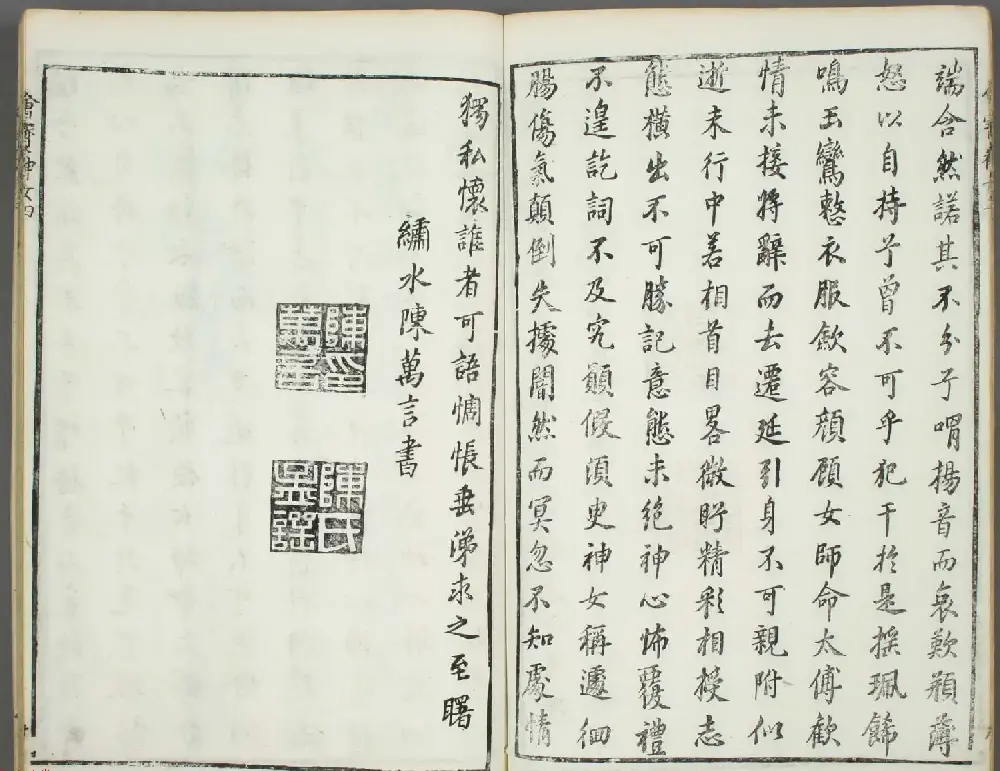 端含然諾其不分兮喟揚音而哀歎頩薄
怒以自持兮曾不可乎犯干於是搖珮飾
鳴玉鸞整衣服斂容顏顧女師命太傅歡
情未接將辭而去遷延引身不可親附似
逝未行中若相首目畧微眄精彩相授志
態橫出不可勝記意態未絕神心怖覆禮
不遑訖詞不及究願假須臾神女稱遽徊
腸傷氣顛倒失據闇然而冥忽不知處情
獨私懷誰者可語惆悵垂涕求之至曙
繡水陳萬言書
陳印
萬言
陳氏